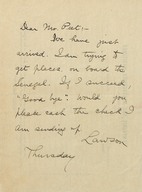 Dear Mr. Peet:-
I've have just
arrived. I am trying to
get places, on board the
Senegal. If I succeed,
"Good bye". Would you
please cash the check I
am sending of
Lawson
Thursday